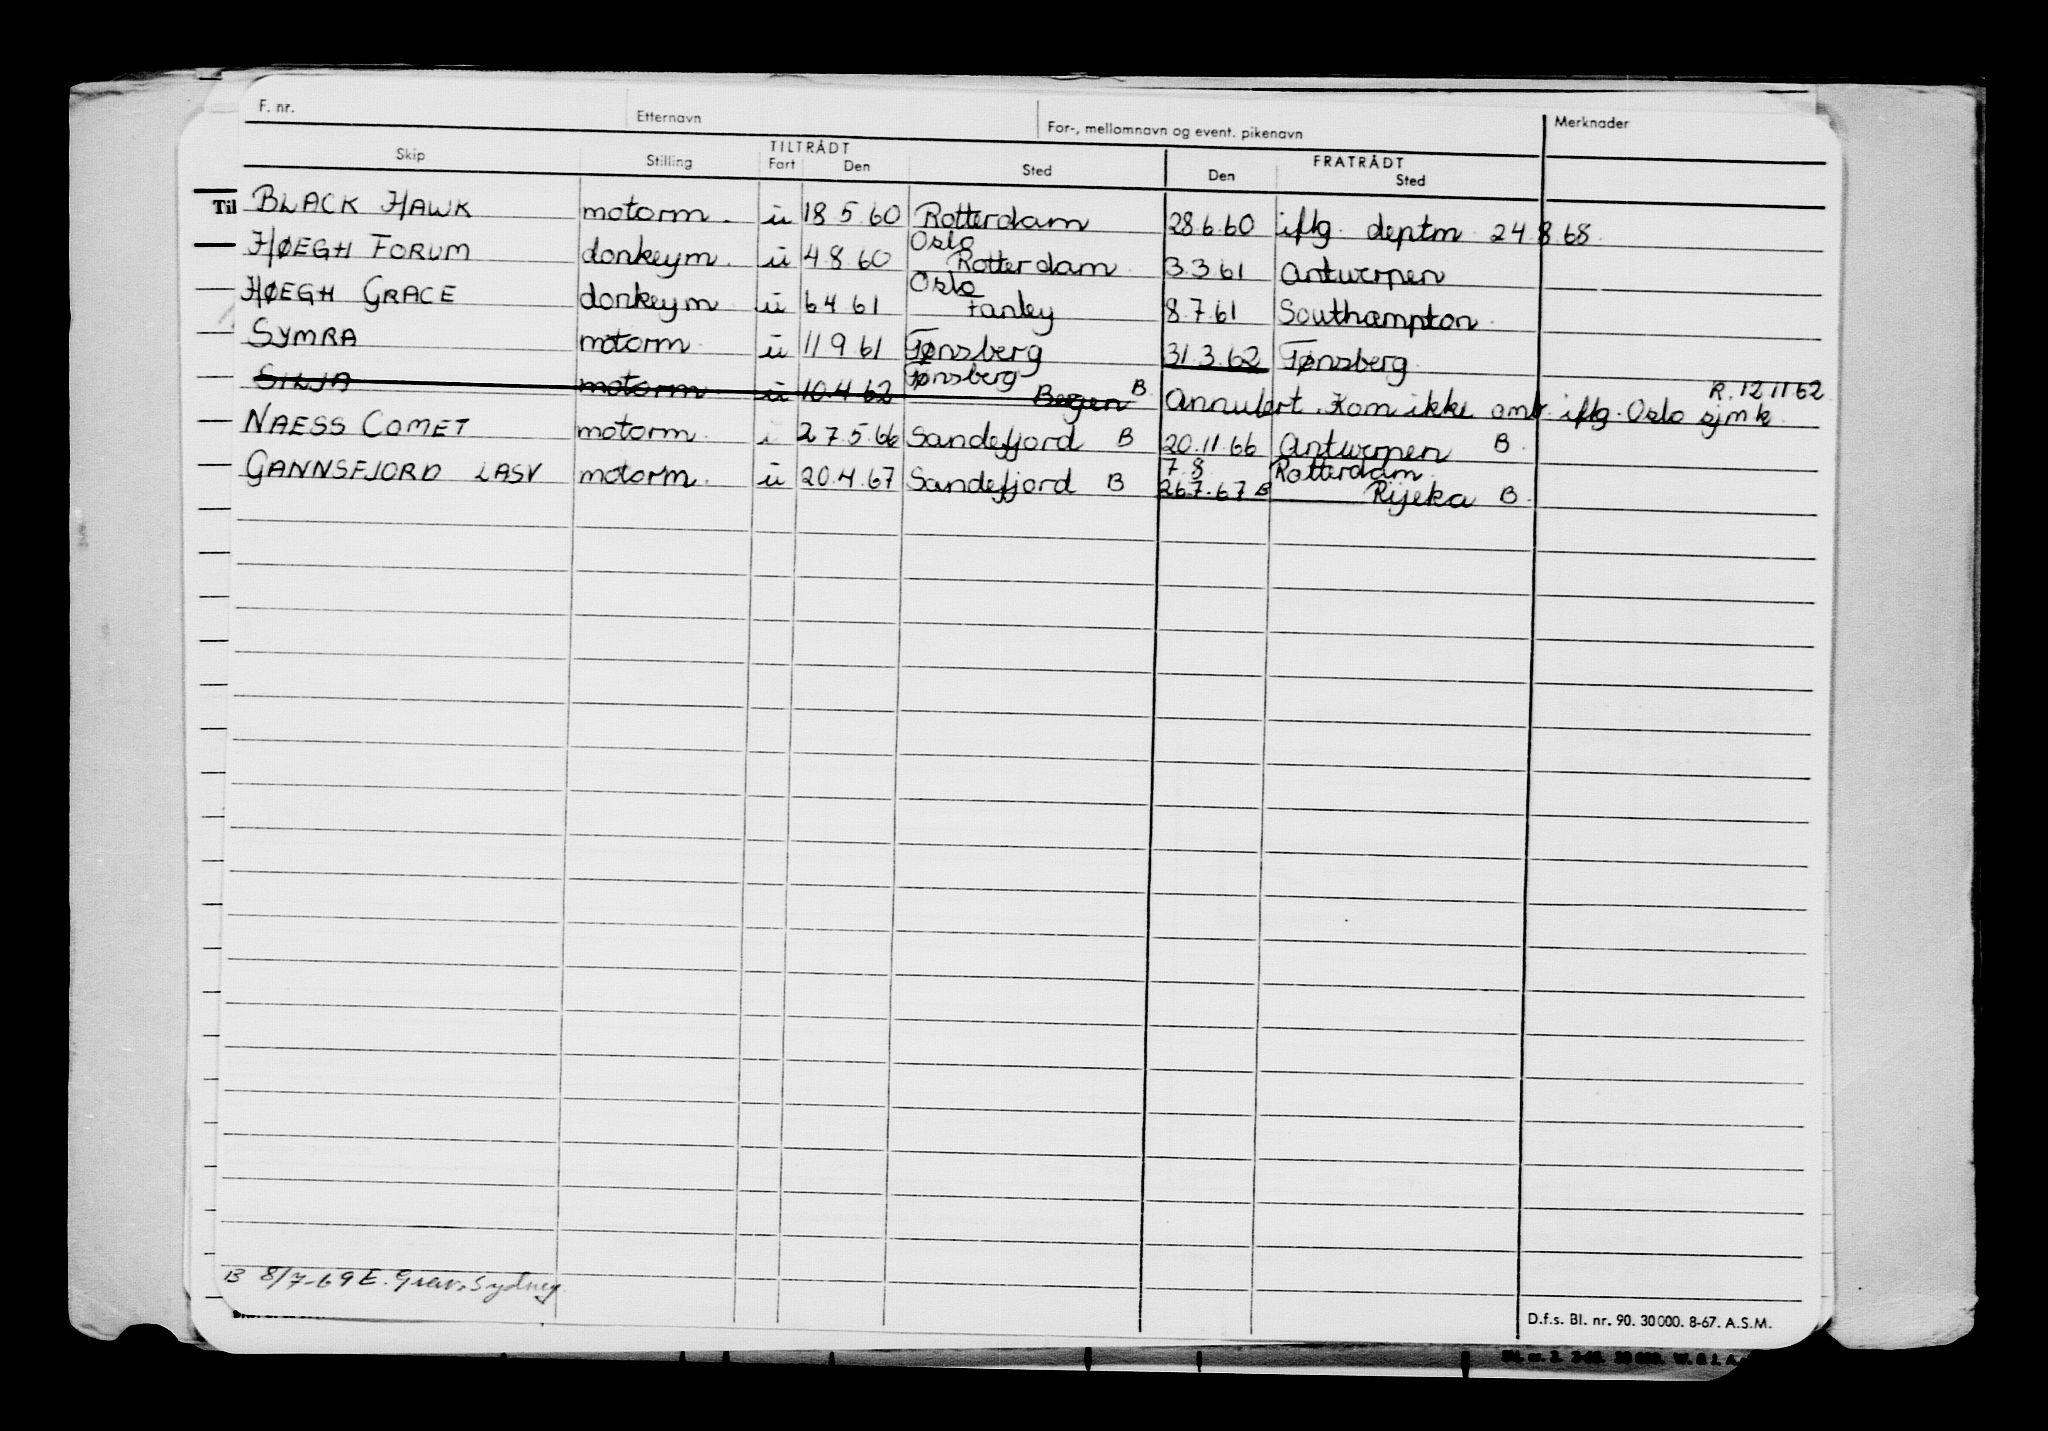 F. nr. Etternavn For-, mellomnavn og event. pikenavn Merknader
TILTRÅDT FRATRÅDT
Skip Stilling Fart Den Sted Den Sted
Til
BLACK HAWK motorm. u 18 5.60 Rotterdam 28.6.60 iflg. deptm 24.8.68.
Oslo
HØEGH FORUM donkeym. u 4.8.60 Rotterdam 3.3.61 Antwerpen
Oslo
HØEGH GRACE donkeym u 6 4 61 Fanley 8.7.61 Southampton
SYMRA motorm u 11 9 61 Tønsberg 31.3.62 Tønsberg
Tønsberg R. 12 11 62
SILJA motorm u 10.4 62 Bergen B Annulert. Kom ikke omb. iflg. Oslo sjmk.
NAESS COMET motorm. 27.5.66 Sandefjord B 20.11.66 Antwerpen B
7.8 Rotterdam
GANNSFJORD LASV motorm. u 20.4.67 Sandefjord B 26.7.67 B Rijeka B
B 8/7-69 E. Grav. Sydney
D.f.s. Bl. nr. 90. 30000. 8-67. A.S.M.